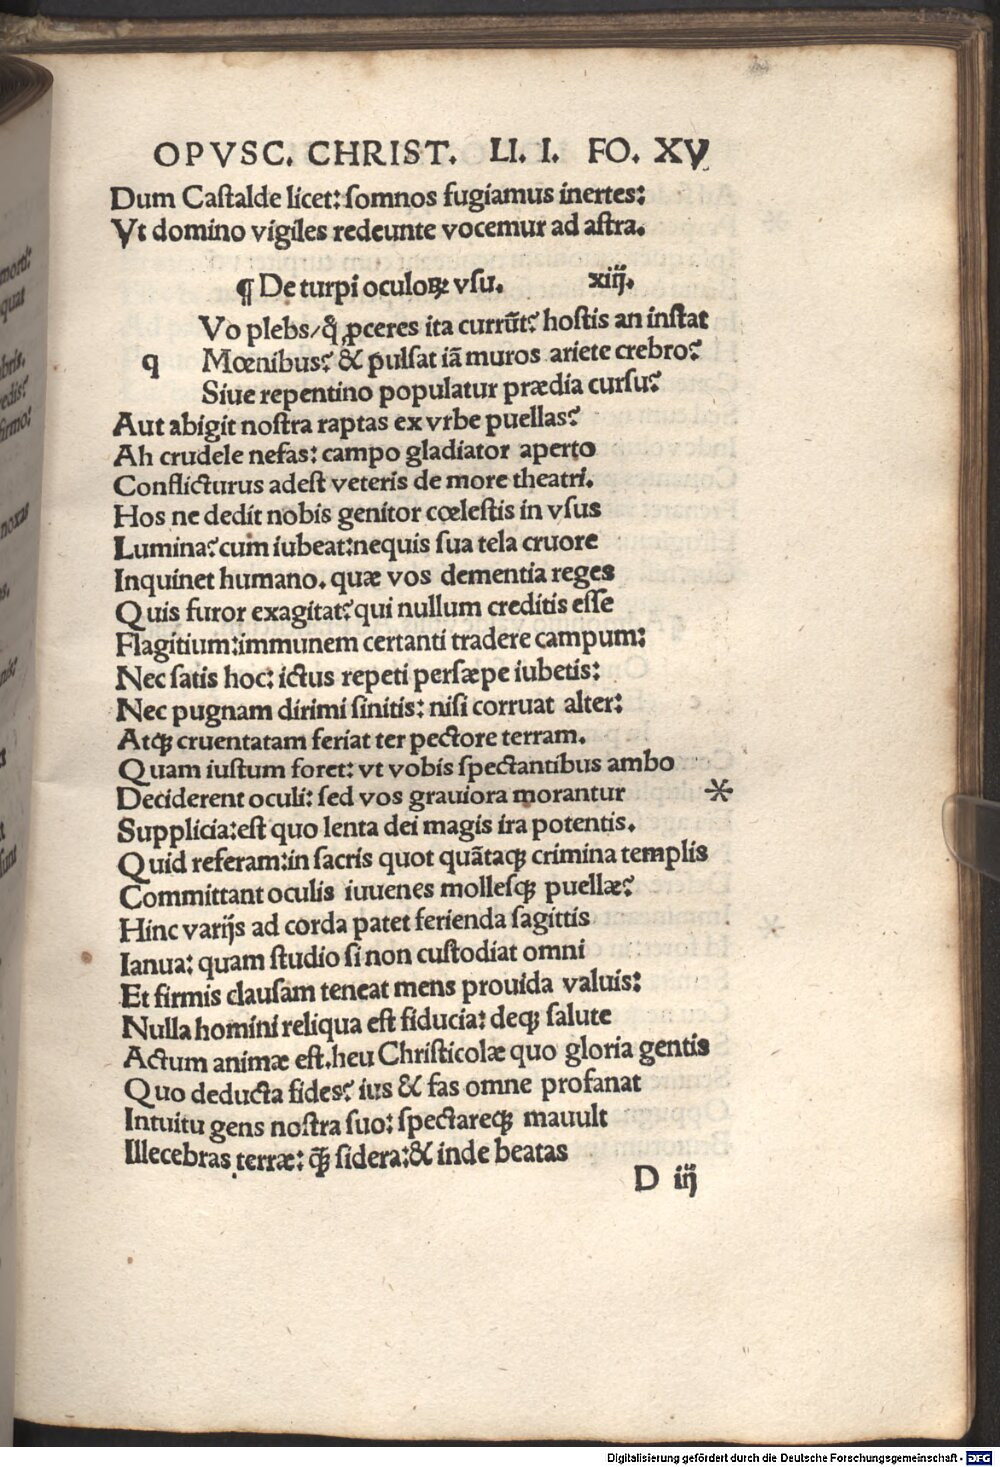 OPVSC. CHRIST. LI. I. FO. XV
Dum Caſtalde licet: ſomnos fugiamus inertes:
Vt domino vigiles redeunte vocemur ad aſtra.
¶ De turpi oculoꝝ vſu. xiij.
Vo plebs/q̊ ꝓceres ita currũt? hoſtis an inſtat
q Mœnibus? & pulſat iã muros ariete crebro?
Siue repentino populatur prædia curſu?
Aut abigit noſtra raptas ex vrbe puellas?
Ah crudele nefas: campo gladiator aperto
Conflicturus adeſt veteris de more theatri.
Hos ne dedit nobis genitor cœleſtis in vſus
Lumina? cum iubeat: nequis ſua tela cruore
Inquinet humano. quæ vos dementia reges
Quis furor exagitat? qui nullum creditis eſſe
Flagitium: immunem certanti tradere campum:
Nec ſatis hoc: ictus repeti perſæpe iubetis:
Nec pugnam dirimi ſinitis: niſi corruat alter:
Atqꝫ cruentatam feriat ter pectore terram.
Quam iuſtum foret: vt vobis ſpectantibus ambo
Deciderent oculi: ſed vos grauiora morantur *
Supplicia: eſt quo lenta dei magis ira potentis.
Quid referam: in ſacris quot quãtaqꝫ crimina templis
Committant oculis iuuenes molleſqꝫ puellæ?
Hinc varijs ad corda patet ferienda ſagittis
Ianua: quam ſtudio ſi non cuſtodiat omni
Et firmis clauſam teneat mens prouida valuis:
Nulla homini reliqua eſt fiducia: deqꝫ ſalute
Actum animæ eſt. heu Chriſticolæ quo gloria gentis
Quo deducta fides? ius & fas omne profanat
Intuitu gens noſtra ſuo: ſpectareqꝫ mauult
Illecebras terræ: q̃ꝫ ſidera: & inde beatas
D iij
mord:
quat
bris.
edis?
firmo:
noxas
nis:
ſunt
Digitalisierung gefördert durch die Deutsche Forschungsgemeinschaft - DFG